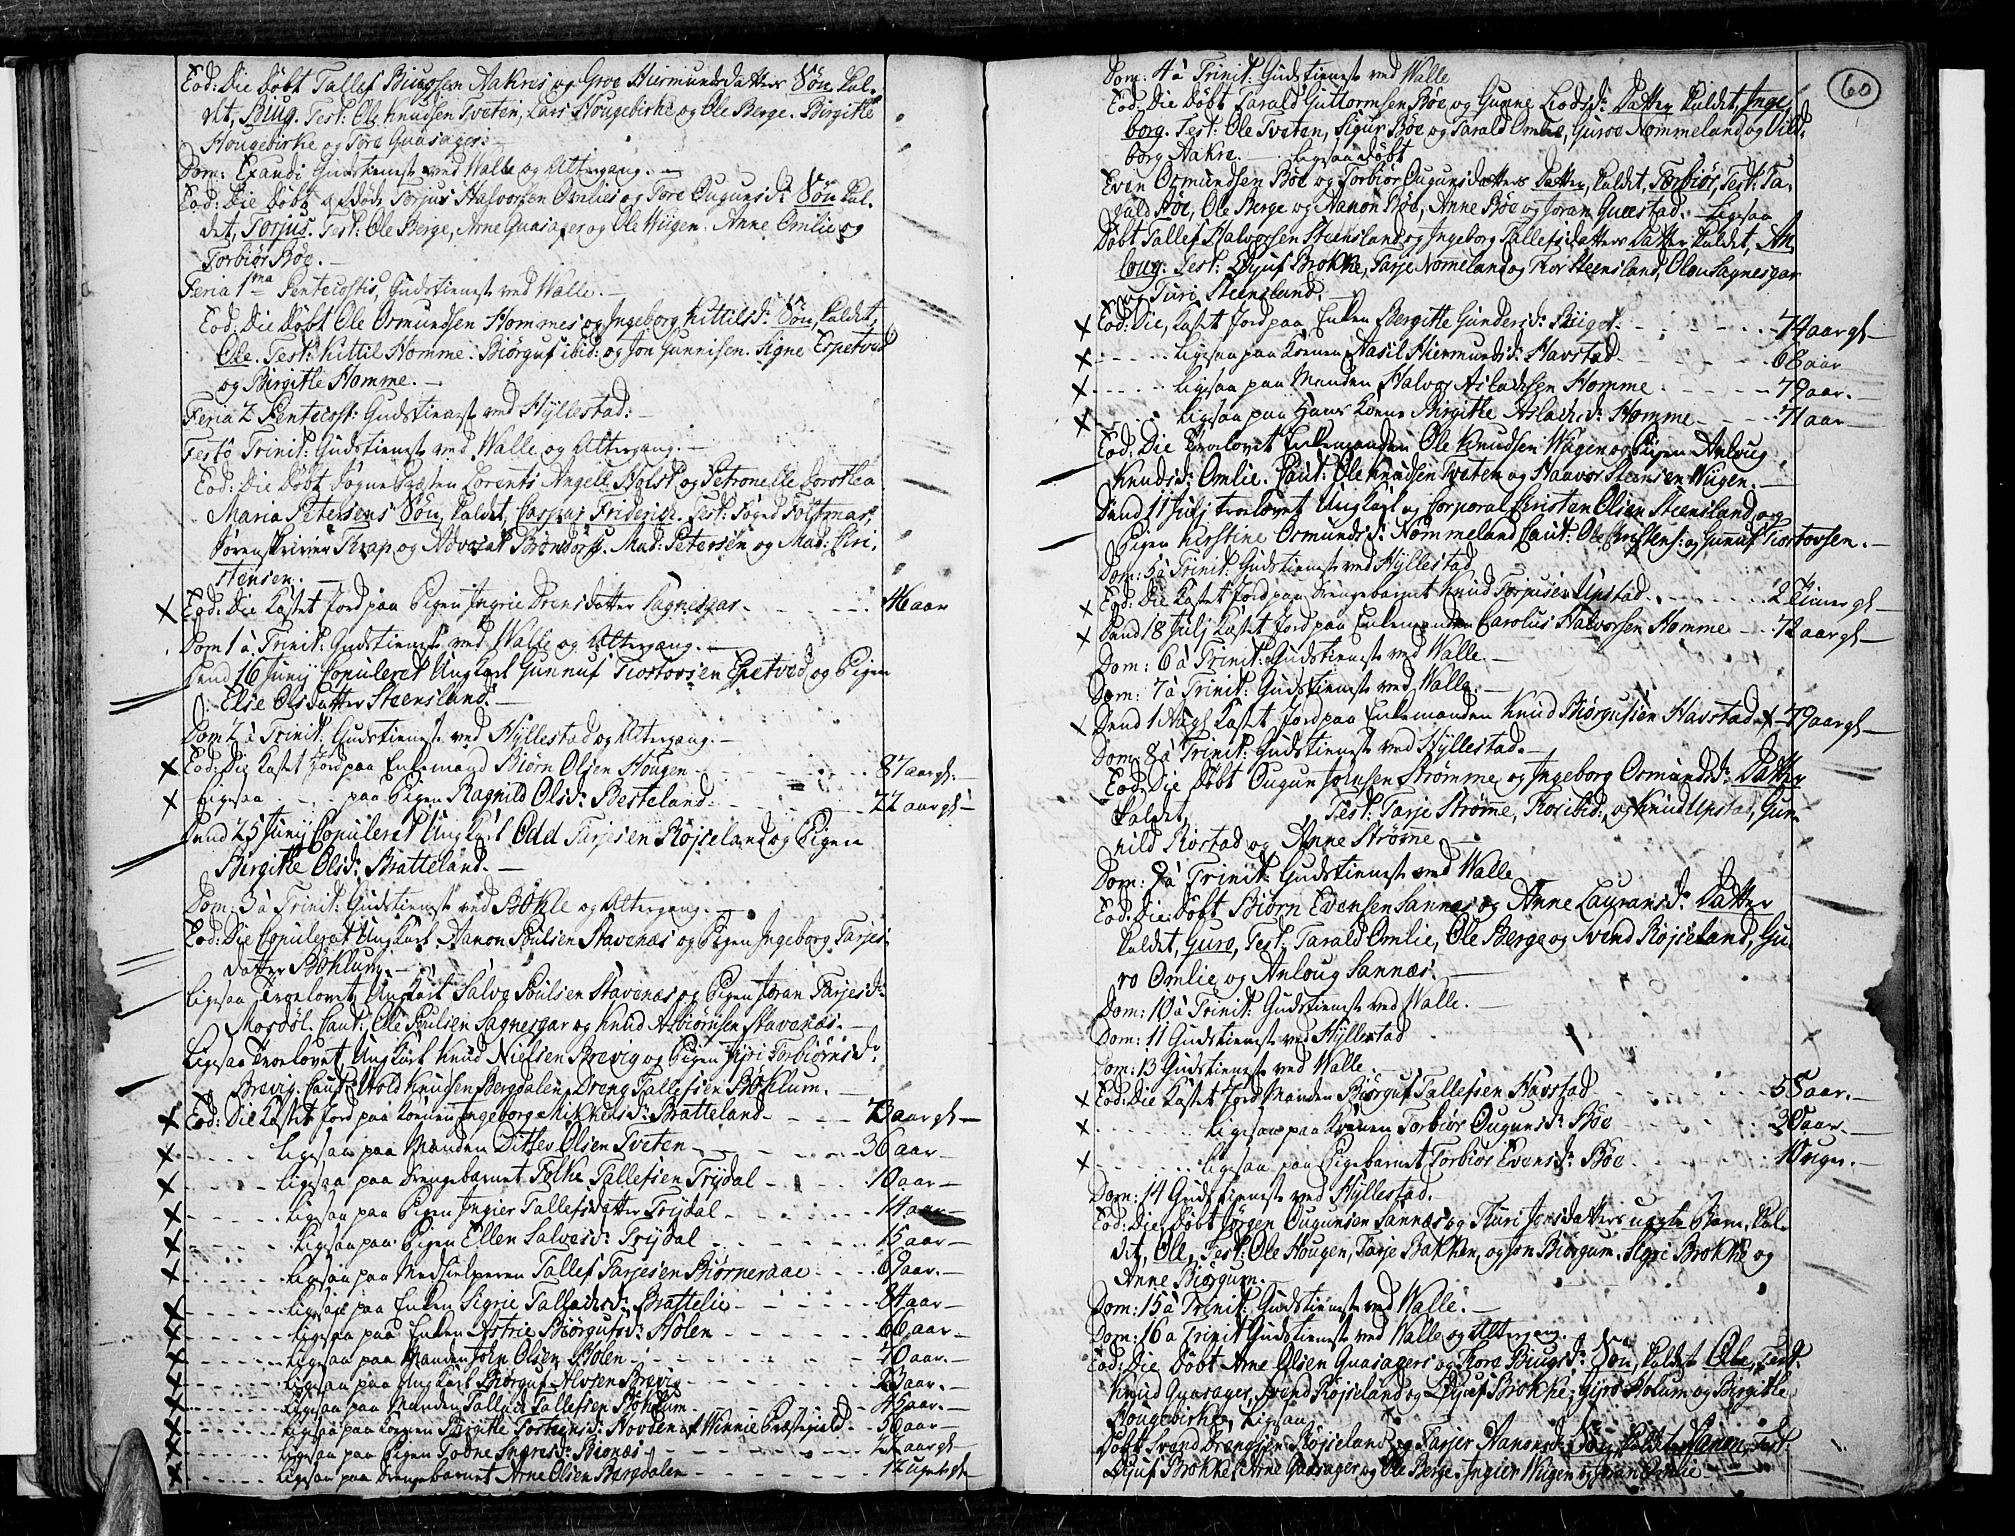 Eod: Die Døbt Tallef Biugsen Aakres og Groe Hiermundsdatters Søn kal-
det, Biug. Test: Ole Knudsen Tveten, Lars Hougebirke og Ole Berge. Birgithe
Hougebirke og Tore Quasager.
Dom: Exaudi Gudstieneste ved Walle og Altergang.
Eod: Die Døbt Torjus Halvorsen Omlies og Tore Ougunsd: Søn kal-
det, Torjus. Test: Ole Berge, Arne Quasager og Ole Wiigen. Anne Omlie og
Torbiør Bøe.
Feria 1ma Pentecostis, Gudstieneste ved Walle.
Eod: Die Døbt Ole Osmundsen Hommes og Ingeborg Kittilsd: Søn, kaldet,
Ole. Test: Kittil Homme. Biørguf ibid: og Jon Gunnufsen. Signe Espetved
og Birgithe Homme.
Feria 2 Pentecost: Gudstieneste ved Hyllestad.
Festo Trinit: Gudstieneste ved Walle og Altergang.
Eod: Die Døbt Sogne Præsten Lorents Angell Holst og Petronelle Dorothea
Maria Petersens Søn, kaldet, Caspar Friderich. Test: Foged
Sorenskriver Thrap og Advocat Brøndorf. Mad: Petersen og Mad: Chri-
stensen.
X Eod: Die Kastet Jord paa Pigen Ingrie Orensdatter Sagnesgar 46 aar
Dom 1 à Trinit: Gudstieneste ved Walle og Altergang.
Dend 16 Junij Copuleret Ungkarl Gunnuf Tiostovsen Espetved og Pigen
Else Olsdatter Steensland.
Dom 2 à Trinit: Gudstieneste ved Hyllestad og Altergang.
X Eod: Die Kastet Jord paa Enkemand Biørn Olsen Hougen 87 aar gl.
X Ligesaa paa Pigen Ragnild Olsd: Besteland 22 aar gl
Dend 25 Junij Copuleret Ungkarl Odd Tarjesen Røjseland og Pigen
Birgithe Olsd: Bratteland.
Dom: 3 à Trinit: Gudstieneste ved Bøkle og Altergang.
Eod: Die Copuleret Ungkarl Aanon Poulsen Stavenæs og Pigen Ingeborg Tarjes-
datter Bøklum.
Ligesaa Trolovet Ungkarl Salve Poulsen Stavenæs og Pigen Joran Tarjesd:
Mosdøl. Caut: Ole Poulsen Sagnesgar og Knud Asbiørnsen Stavenæs.
Ligesaa Trolovet Ungkarl Knud Nielsen Brevig og Pigen Torbiørnsd:
Brevig. Caut: Knudsen Bergdalen, Dreng Tallefsen Bøklum.
X Eod: Die Kastet Jord paa Konen Ingeborg Mikkelsd: Bratteland 73 aar gl
X Ligesaa paa Manden Ditlev Olsen Tveten 36 aar
X Ligesaa paa Drengebarnet Folke Tallefsen Trydal 10 aar
X Ligesaa paa Pigen Ingier Tallefsdatter Trydal 14 aar
X Ligesaa paa Pigen Ellen Salvesd: Trydal 15 aar
X Ligesaa paa Medhielperen Tallef Tarjesen Biørneraae 69 aar.
X Ligesaa paa Enken Sigrie Talladsd: Brattelie 84 aar
X Ligesaa paa Enken Astrie Biørgufsd: Holen 66 aar
X Ligesaa paa Manden Joln Olsen Holen 70 aar.
X Ligesaa paa Ungkarl Biørguf Alvsen Brevig 23 aar.
X Ligesaa paa Manden Tallef Tallefsen Bøklum 45 aar.
X Ligesaa paa Konen Birgithe Torsteensd: Hovden af Winnie Præstegield 56 aar
X Ligesaa paa Pigen Todne Snaresd: Bionæs aar gl
X Ligesaa paa Drengebarnet Arne Olsen Bergdalen 12 uger gl
60
Dom: 4 à Trinit: Gudstieneste ved Walle
Eod: Die Døbt Tarald Guttormsen Bøe og Gunne Liodsd: Datter kaldet, Inge-
borg. Test: Ole Tveten, Sigur Bøe og Tarald Omlie, Guroe Nommeland og Vil-
borg Aakre. Ligesaa Døbt
Even Osmundsen Bøe og Torbiør Ougunsdatters Datter, kaldet, Torbiør, Test: Ta-
rald Bøe, Ole Berge og Aanon Bøe, Anne Bøe og Joran Questad. Ligesaa
Døbt Tallef Halvorsen Steensland og Ingeborg Tallefsdatters Datter, kaldet, An-
loug. Test: Eljuf Brokke, Tarje Nomeland og Thor Steensland, Olou Sagnesgar
og Turi Steensland.
X Eod: Die, Kastet Jord paa Enken Bergitte Gundersd: 74 aar gl
X Ligesaa paa Konen Aasil Hiermundsd: Havstad 68 aar
X Ligesaa paa Manden Halvor Asladsen Homme 79 aar.
X Ligesaa paa Hans Konne Birgithe Asladsd: Homme 71 aar
Eod: Die Trolovet Enkemanden Ole Knudsen Wiigen og Pigen Anloug
Knudsd: Omlie. Caut: Ole Knudsen Tveten og Haavor Steensen Wiigen.
Dend 11 Julj trolovet Ungkarl og Corporal Christen Olsen Steensland og
Pigen Kirstine Osmundsd: Nommeland Caut: Ole Christens: og Gunnuf Tiostovsen.
Dom: 5 à Trinit: Gudstieneste ved Hyllestad
X Eod: Die Kastet Jord paa Drengebarnet Knud Torjusen Upstad 2 Timer gl
X Dend 18 Julj Kastet Jord paa Enkemanden Carolus Halvorsen Homme 72 aar gl
Dom: 6 à Trinit: Gudstieneste ved Walle.
Dom: 7 à Trinit: Gudstieneste ved Walle.
X Dend 1 Aug: Kastet Jord paa Enkemanden Knud Biørgufsen Havstad 79 aar gl
Dom: 8 à Trinit: Gudstieneste ved Hyllestad.
Eod: Die Døbt Ougun Jolnsen Strømme og Ingeborg Osmundsd: Datter
kaldet, Test: Tarje Strømme, Thor ibid:, og Knud Upstad, Gun-
nild Rostad og Anne Strømme
Dom: 9 à Trinit: Gudstieneste ved Walle
Eod: Die: Døbt Biørn Edensen Sannes og Anne Lauransd: Datter
kaldet, Guro, Test: Tarald Omlie, Ole Berge og Svend Røjseland, Gu-
ro Omlie og Anloug Sannæs.
Dom: 10 à Trinit: Gudstieneste ved Walle.
Dom: 11 Gudstieneste ved Hyllestad
Dom: 13 Gudstieneste ved Walle.
X Eod: Die Kastet Jord Manden Biørguf Tallefsen Havstad 58 aar.
X Ligesaa paa Konen Torbiør Ougunsd: Bøe 38 aar.
X Ligesaa paa Pigebarnet Torbiør Evensd: Bøe 10 uger.
Dom: 14 Gudstieneste ved Hyllestad.
Eod: Die, Døbt Jørgen Ougunsen Sannæs og Thuri Jonsdatters uægte Barn, kal-
det, Ole, Test: Ole Hougen, Tarje Bakken, og Jon Biørgum. Sigri Brokke og
Anne Biørgum.
Dom: 15 à Trinit: Gudstieneste ved Walle.
Dom: 16 à Trinit Gudstieneste ved Walle og Altergang.
Eod: Die Døbt Arne Olsen Quasagers og Thore Biugsd: Søn, kaldet Ole, Test:
Knud Quasager, Svend Røjseland og Eljuf Brokke; Gyro Holum og Birgithe
Hougebirke, Ligesaa
Døbt Svend Drengsen Røjseland og Tarjer Aanonsd: Søn, kaldet Aanon, Test:
Eljuf Brokke, Arne Quasager og Ole Berge, Ingier Wiigen og Joran Omlie